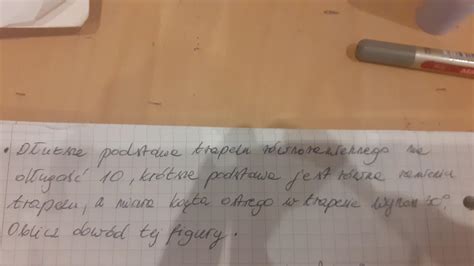 • Dłuższa podstawa trapezu równoramiennego ma
długość 10, krótsza podstawa jest równa ramieniu
trapezu, a miara kąta ostrego w trapezie wynosi
Oblicz obwód tej figury.